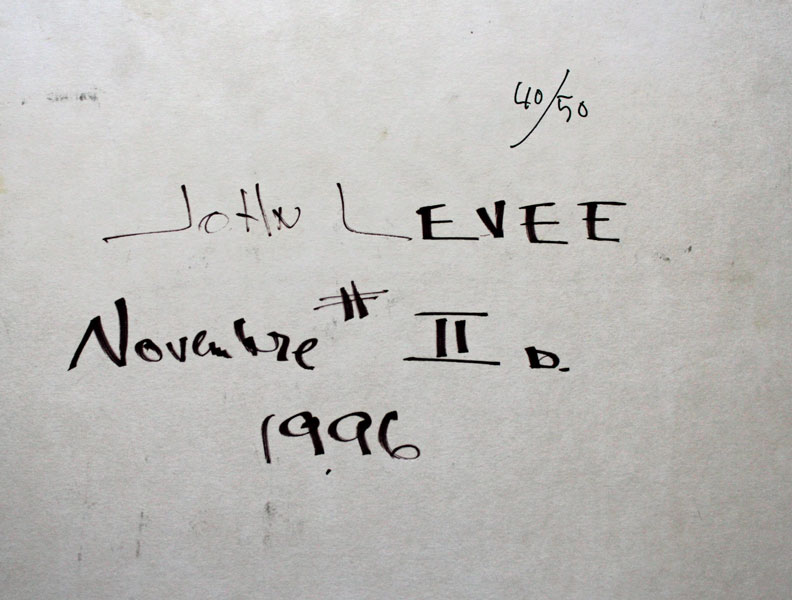 40/50
JOHN LEVEE
Novembre # II D.
1996